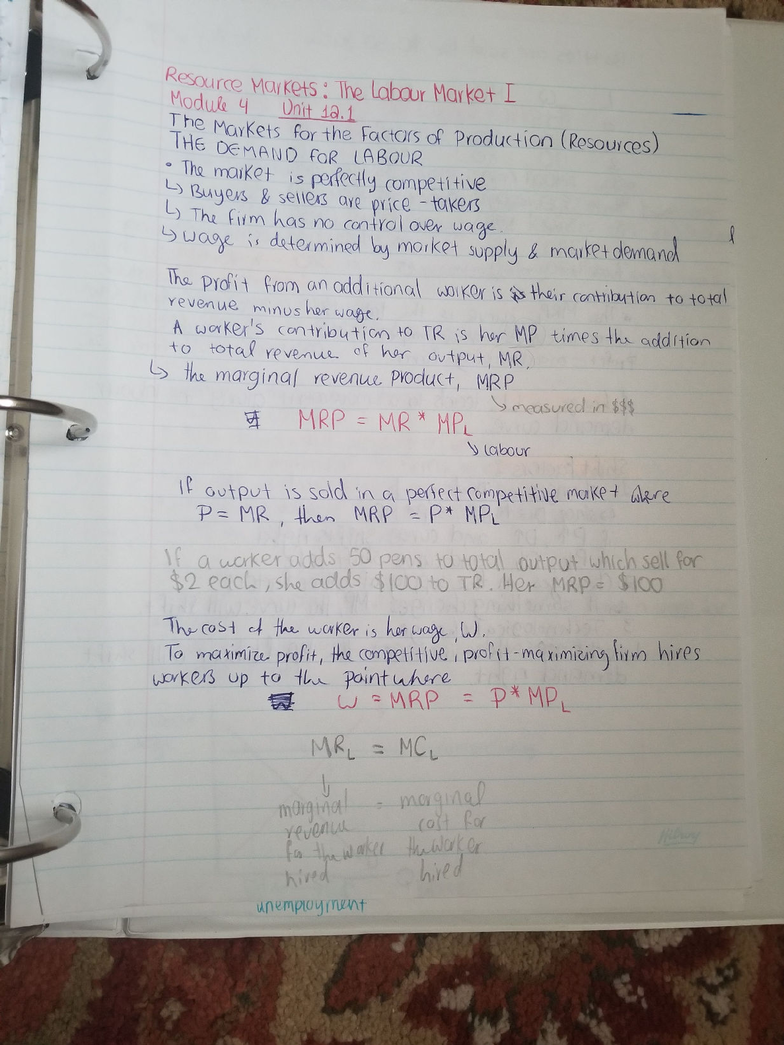 Resource Markets: The Labour Market I
Module 4 Unit 12.1
The Markets for the Factors of Production (Resources)
THE DEMAND FOR LABOUR
• The market is perfectly competitive
↳ Buyers & sellers are price-takers
↳ The firm has no control over wage.
↳ Wage is determined by market supply & market demand
The profit from an additional worker is their contribution to total
revenue minus her wage.
A worker's contribution to TR is her MP times the addition
to total revenue of her output, MR.
↳ the marginal revenue product, MRP
↳ measured in $$$
MRP = MR * MPL
↳ Labour
If output is sold in a perfect competitive market where
P = MR, then MRP = P* MPL
If a worker adds 50 pens to total output which sell for
$2 each, she adds $100 to TR. Her MRP = $100
The cost of the worker is her wage, W.
To maximize profit, the competitive, profit-maximizing firm hires
workers up to the point where
W = MRP = P* MPL
MRL = MCL
↓
marginal = marginal
revenue cost for
for the worker the worker
hired hired
unemployment